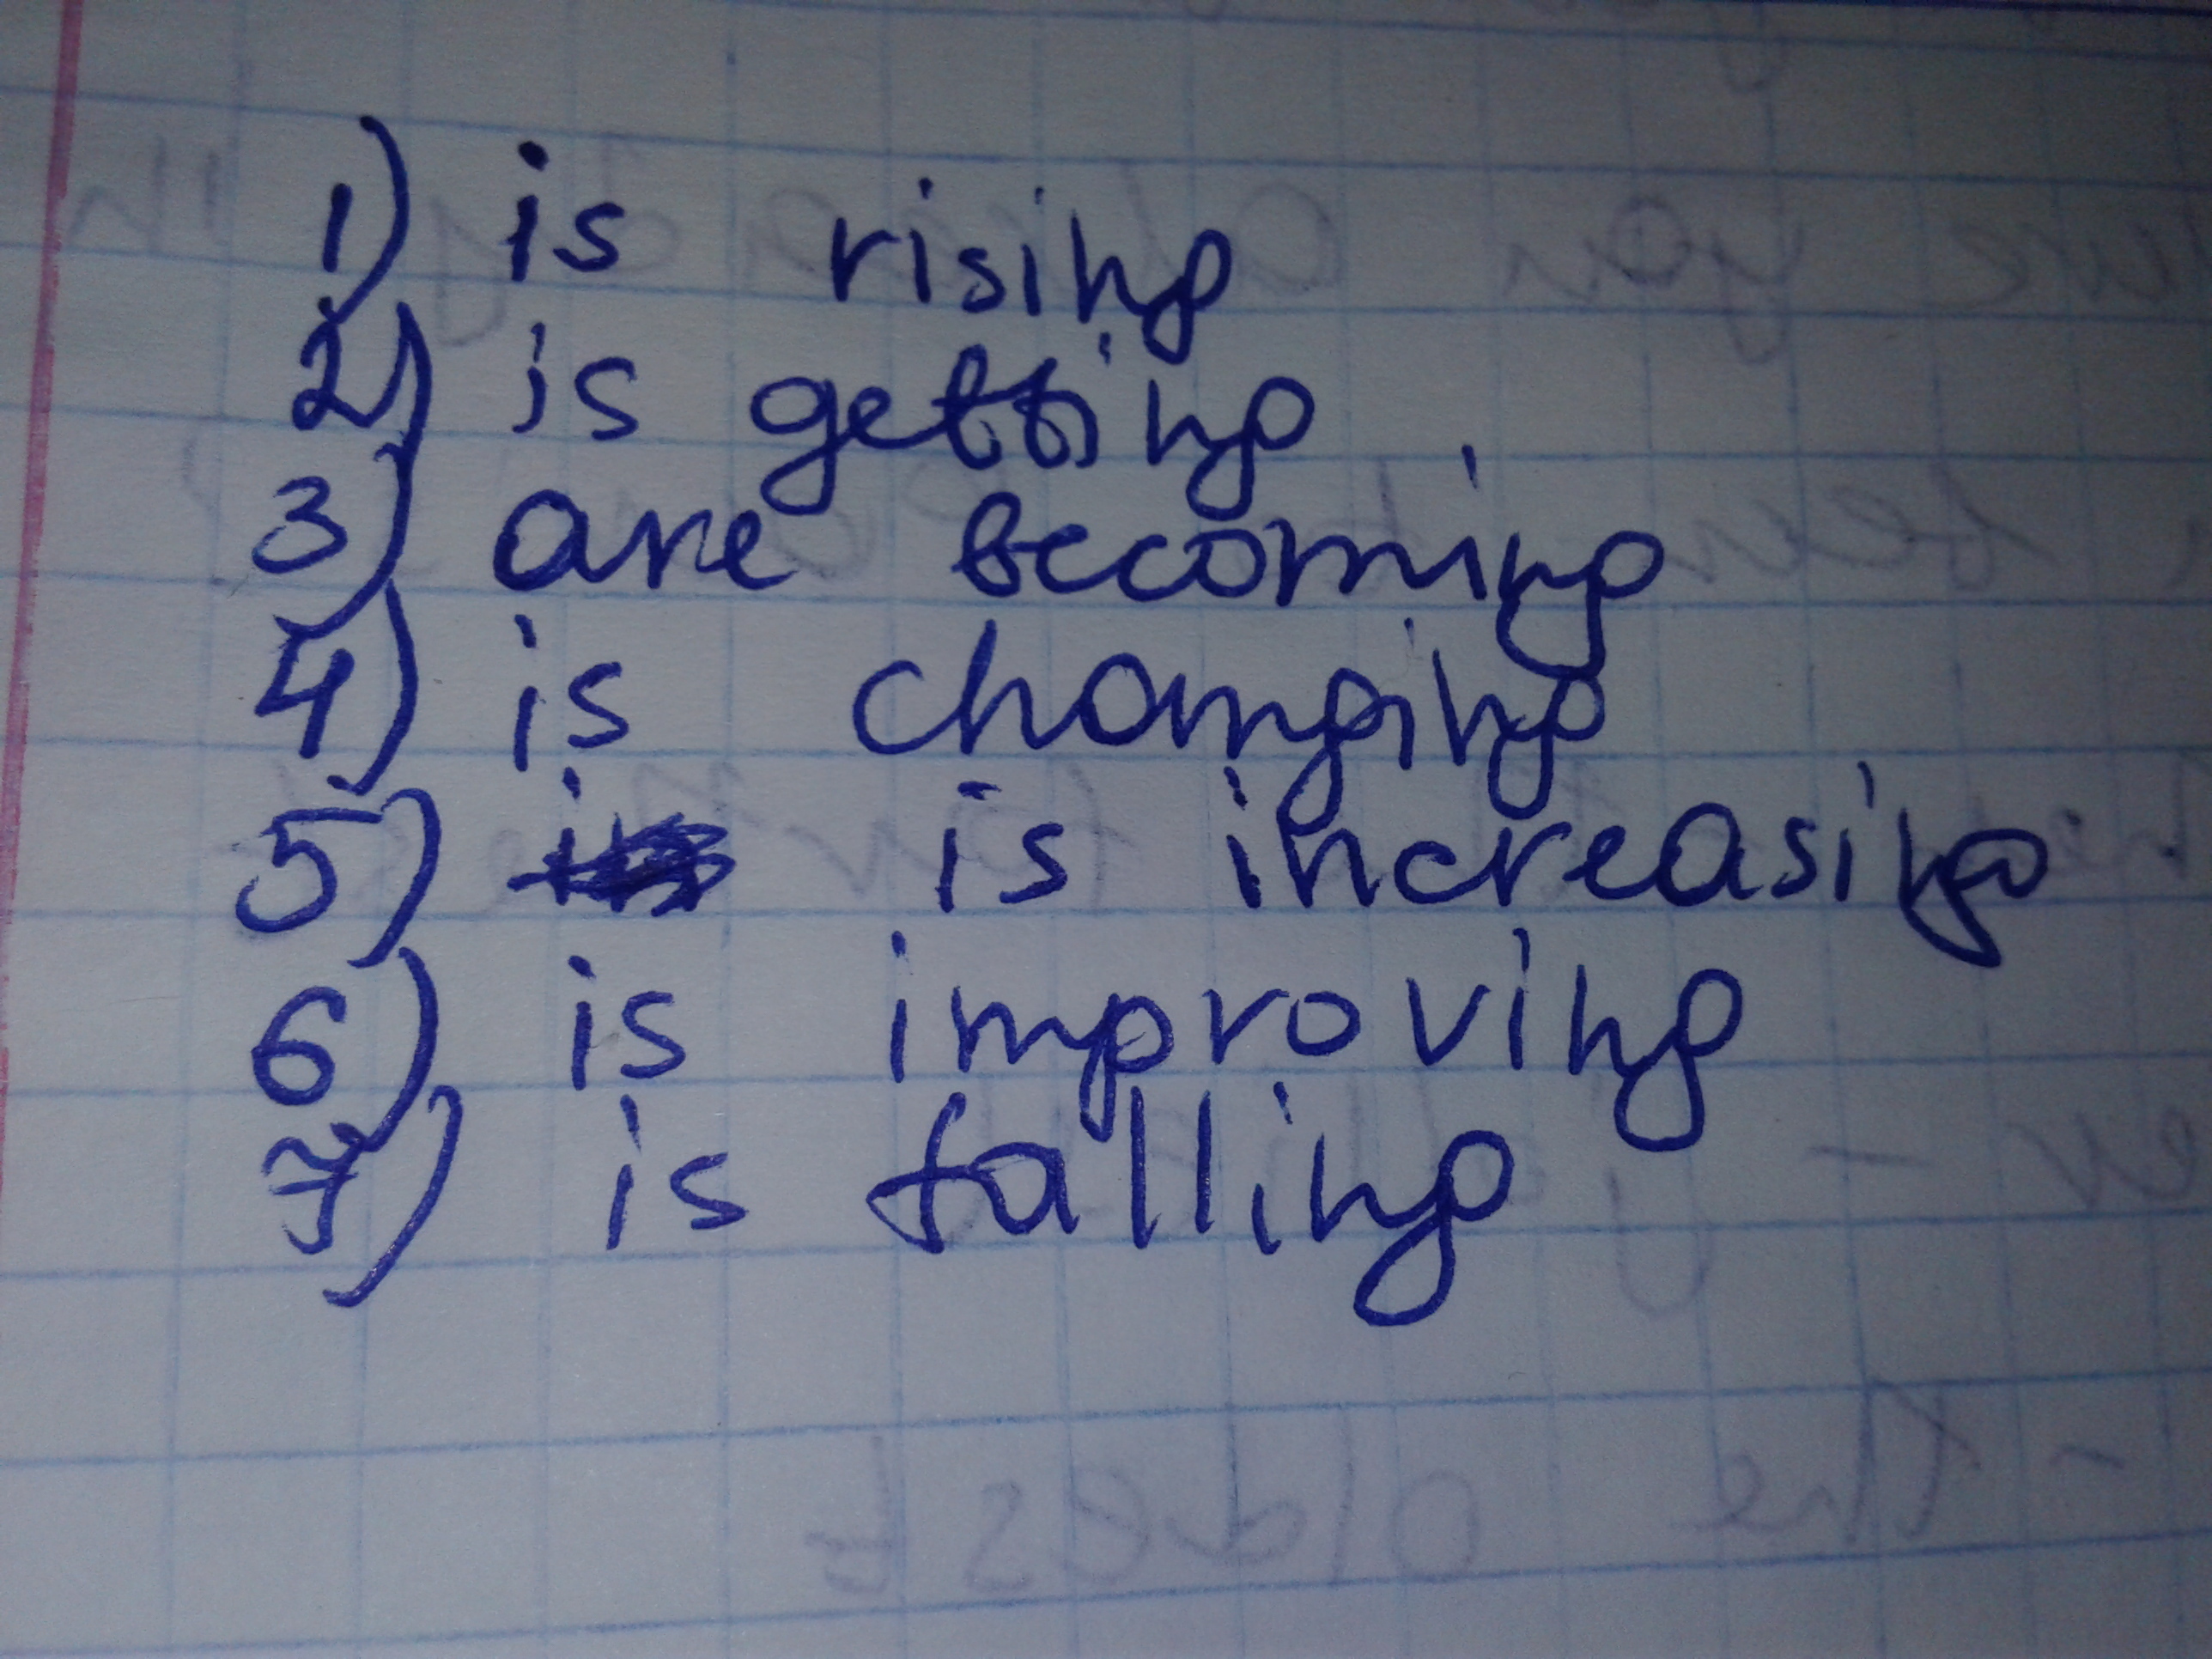 1) is rising
2) is getting
3) are becoming
4) is changing
5) is increasing
6) is improving
7) is falling